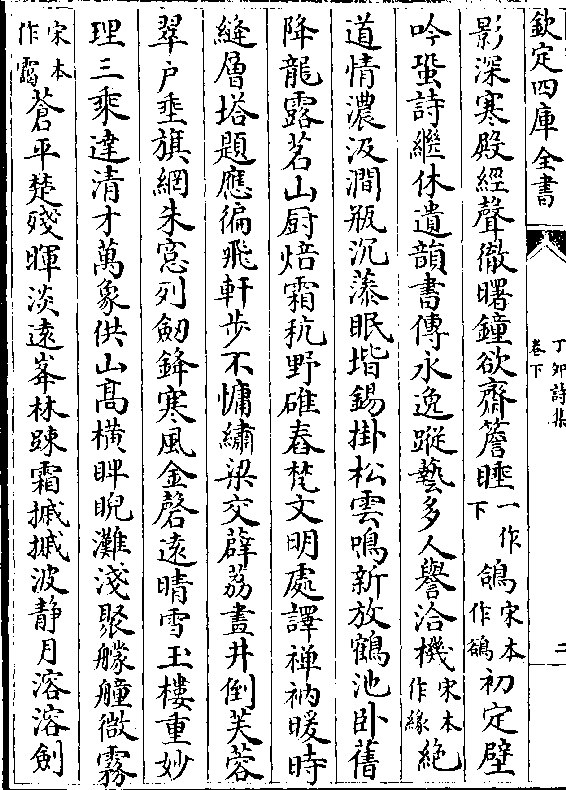 欽定四庫全書
丁卯詩集
卷下
二
影深寒殿經聲徹曙鐘欲齋簷睡一作下鴿宋本作鵒初定壁
吟蛩詩繼休遺韻書傳永逸蹤藝多人譽洽機宋本作緣絶
道情濃汲澗瓶沉藻眠堦錫掛松雲鳴新放鶴池卧舊
降龍露茗山厨焙霜秔野碓舂梵文明處譯禅衲暖時
縫層塔題應徧飛軒步不慵繡梁交薜荔畫井倒芙蓉
翠户垂旗網朱窓列劒鋒寒風金磬逺晴雪玉樓重妙
理三乘達清才萬象供山髙横睥睨灘淺聚艨艟微霧
宋本作靄蒼平楚殘暉淡逺峯林踈霜摵摵波静月溶溶劍